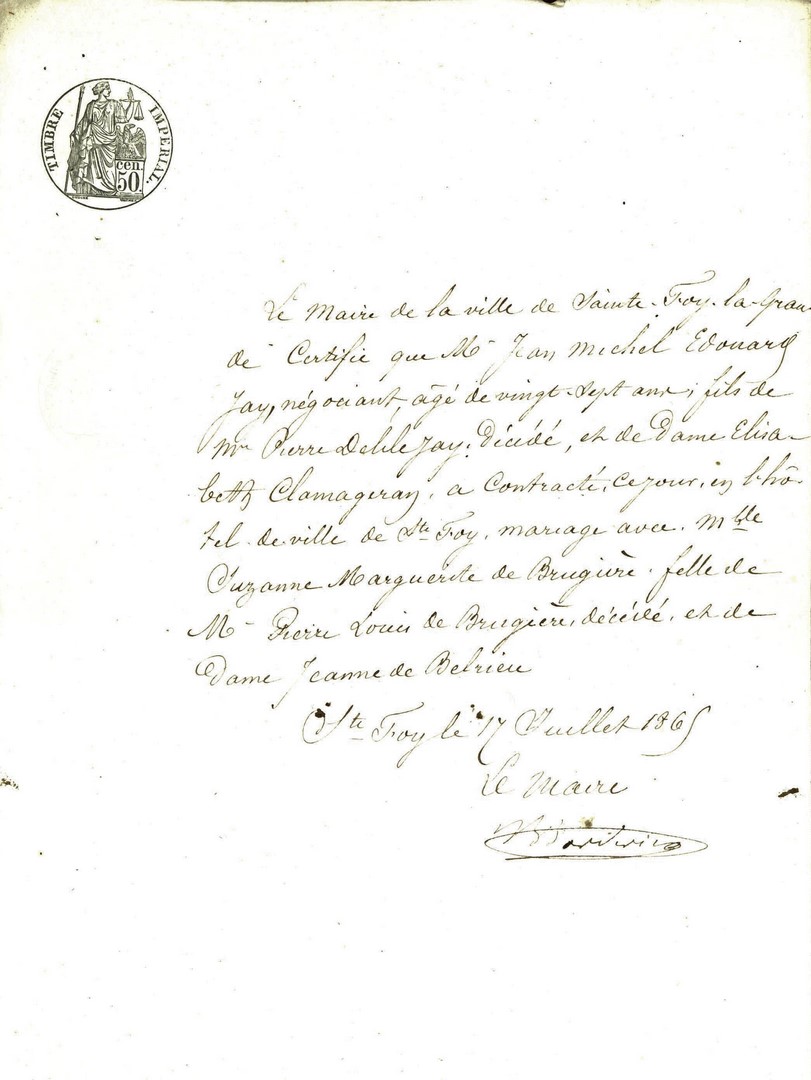 TIMBRE IMPERIAL.
cen.
50.
Le Maire de la ville de Sainte-Foy-la-Gran-
de Certifie que Mr Jean Michel Edouard
Jay, négociant, âgé de vingt-sept ans, fils de
Mr Pierre Delile Jay, décédé, et de Dame Elisa-
beth Clamageran, a contracté, ce jour, en l'hô-
tel de ville de Ste Foy, mariage avec Mlle
Suzanne Marguerite de Brugière, fille de
Mr Pierre Louis de Brugière, décédé, et de
Dame Jeanne de Belrieu
Ste Foy le 17 Juillet 1865
Le Maire